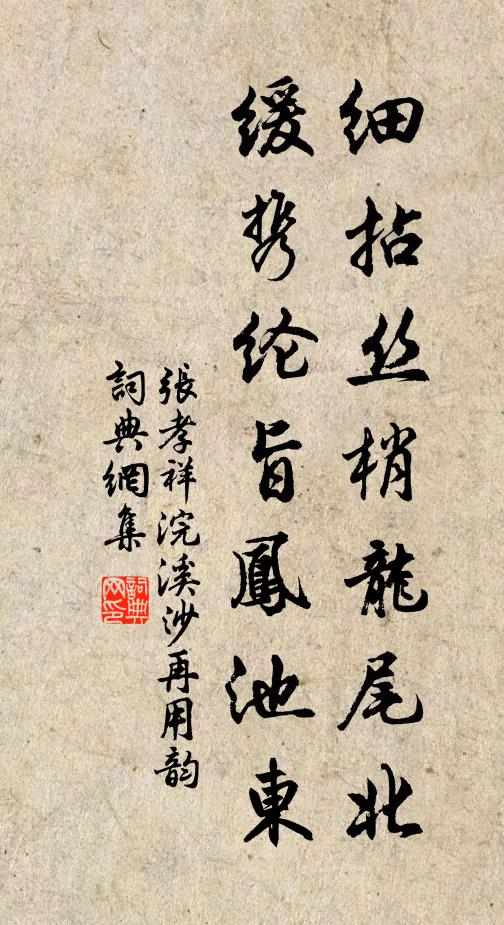 细拈丝梢龍尾北
缓携纶旨鳳池東
張孝祥浣溪沙再用韵
詞典網集
詞典網印